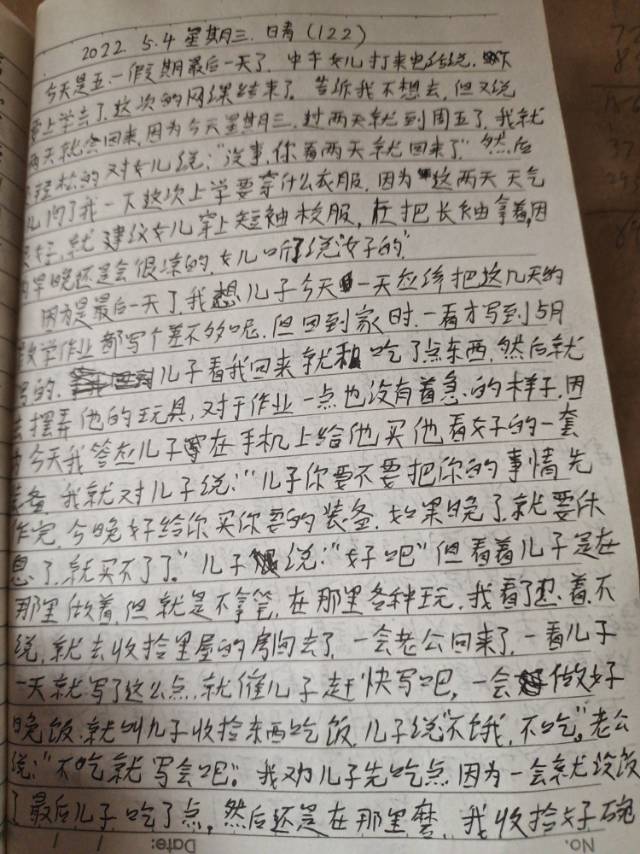 2022.5.4 星期三.日青(122)
今天是五.一假期最后一天了.中午女儿打来电话说.下
要上学去了.这次的网课结束了.告诉我不想去,但又说
两天就会回来,因为今天星期三.过两天就到周五了,我就
轻松的对女儿说:"没事,你看两天就回来了"然后
儿问了我一下这次上学要穿什么衣服,因为这两天天气
好,就建议女儿穿上短袖校服,在把长袖拿着,因
早晚还是会很凉的.女儿听了说"好的"
因为是最后一天了.我想儿子今天一天应该把这几天的
数学作业都写个差不多呢.但回到家时.一看才写到5月
号的.儿子看我回来就和吃了点东西,然后就
去摆弄他的玩具,对于作业一点也没有着急的样子,因
为今天我答应儿子在手机上给他买他看好的一套
装备.我就对儿子说:"儿子你要不要把你的事情先
作完,今晚好给你买你要的装备.如果晚了就要休
息了,就买不了了."儿子说:"好吧"但看着儿子是在
那里做着,但就是不拿笔,在那里各种玩.我看了也.着不
说,就去收拾里屋的房间去了,一会老公回来了,一看儿子
一天就写了这么点.就催儿子赶快写吧,一会做好
晚饭.就叫儿子收拾东西吃饭,儿子说"不饿,不吃".老公
说:"不吃就写会吧".我劝儿子先吃点因为一会就没饭
了最后儿子吃了点,然后还是在那里磨,我收拾好碗
Date:
No.